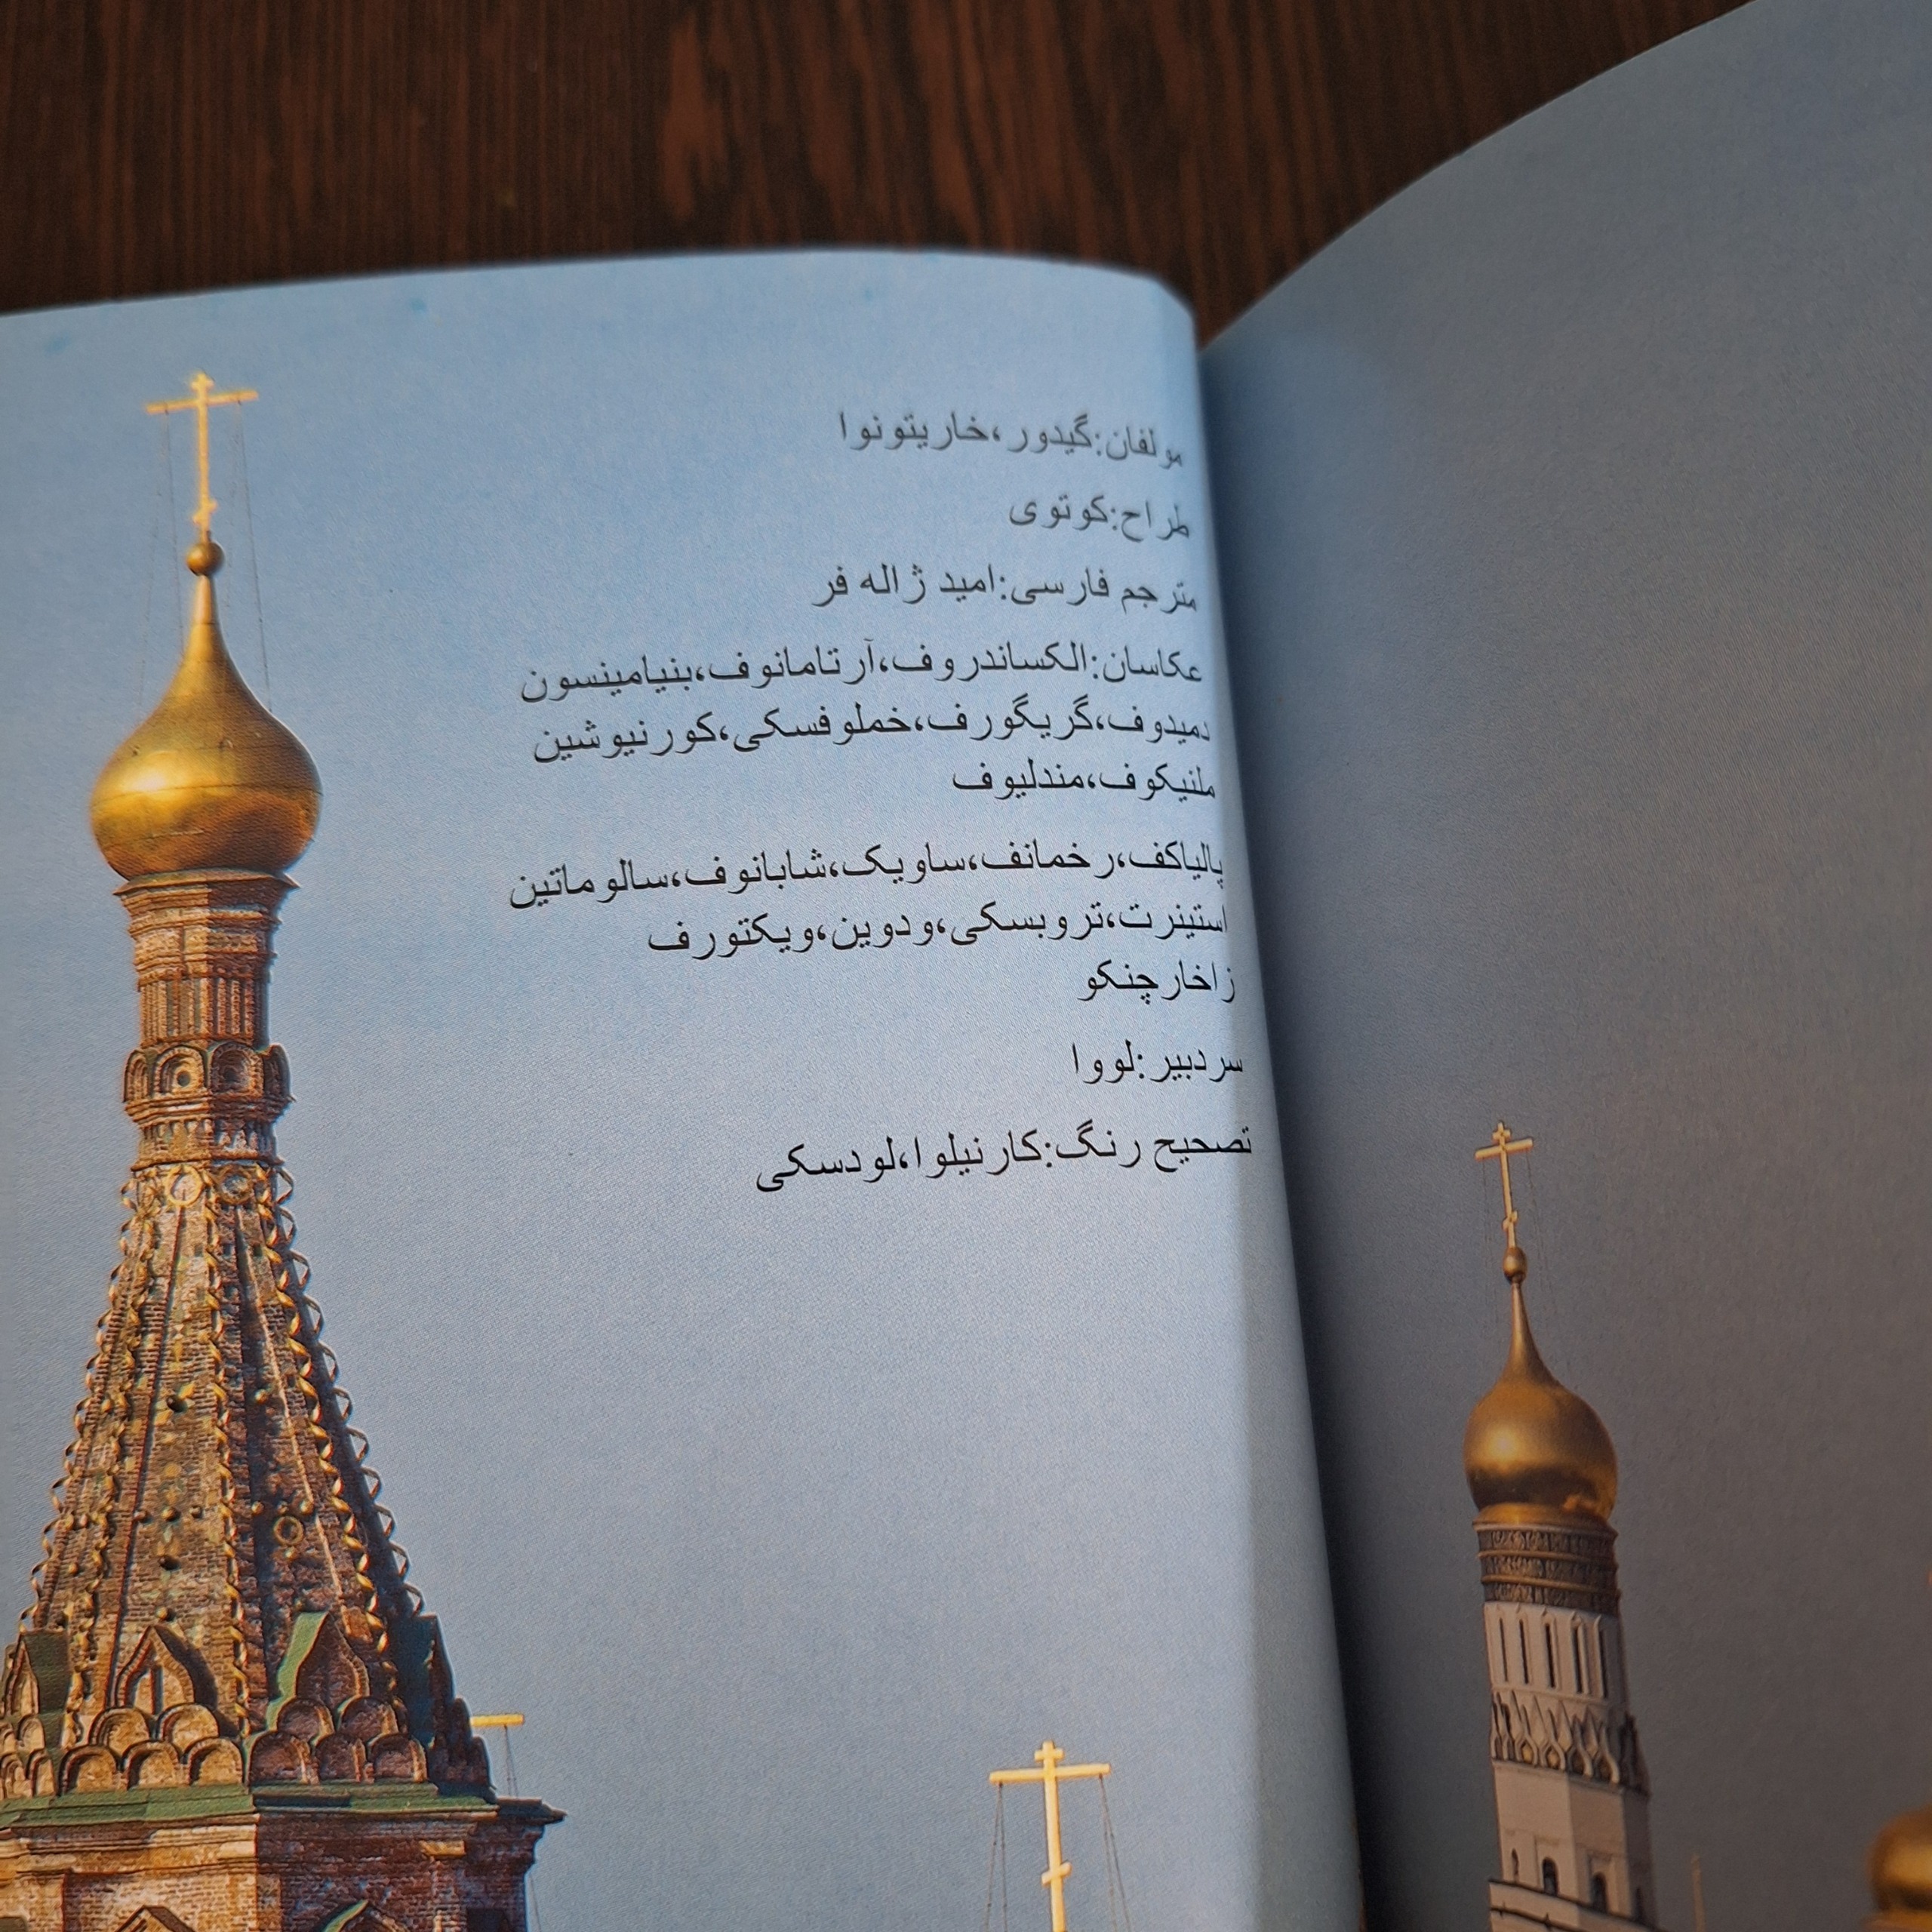 مولفان:گیدور،خاریتونوا
طراح:کوتوی
مترجم فارسی:امید ژاله فر
عکاسان:الکساندروف،آرتامانوف،بنیامینسون
دمیدوف،گریگورف،خملوفسکی،کورنیوشین
ملنیکوف،مندلیوف
پالیاکف،رخمانف،ساویک،شابانوف،سالوماتین
استینرت،تروبسکی،ودوین،ویکتورف
زاخارچنکو
سردبیر:لووا
تصحیح رنگ:کارنیلوا،لودسکی